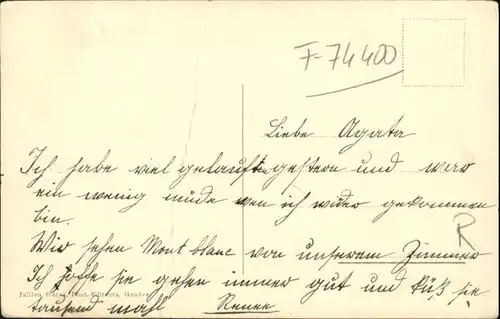 F-74400
Liebe Agata
Ich habe viel gelauften gestern und war
ein wenig müde wen ich wider gekommen
bin.
Wir sehen Mont blanc von unserem Zimmer
Ich hoffe sie gehen immer gut und küß sie
tausend mahl Renee
R